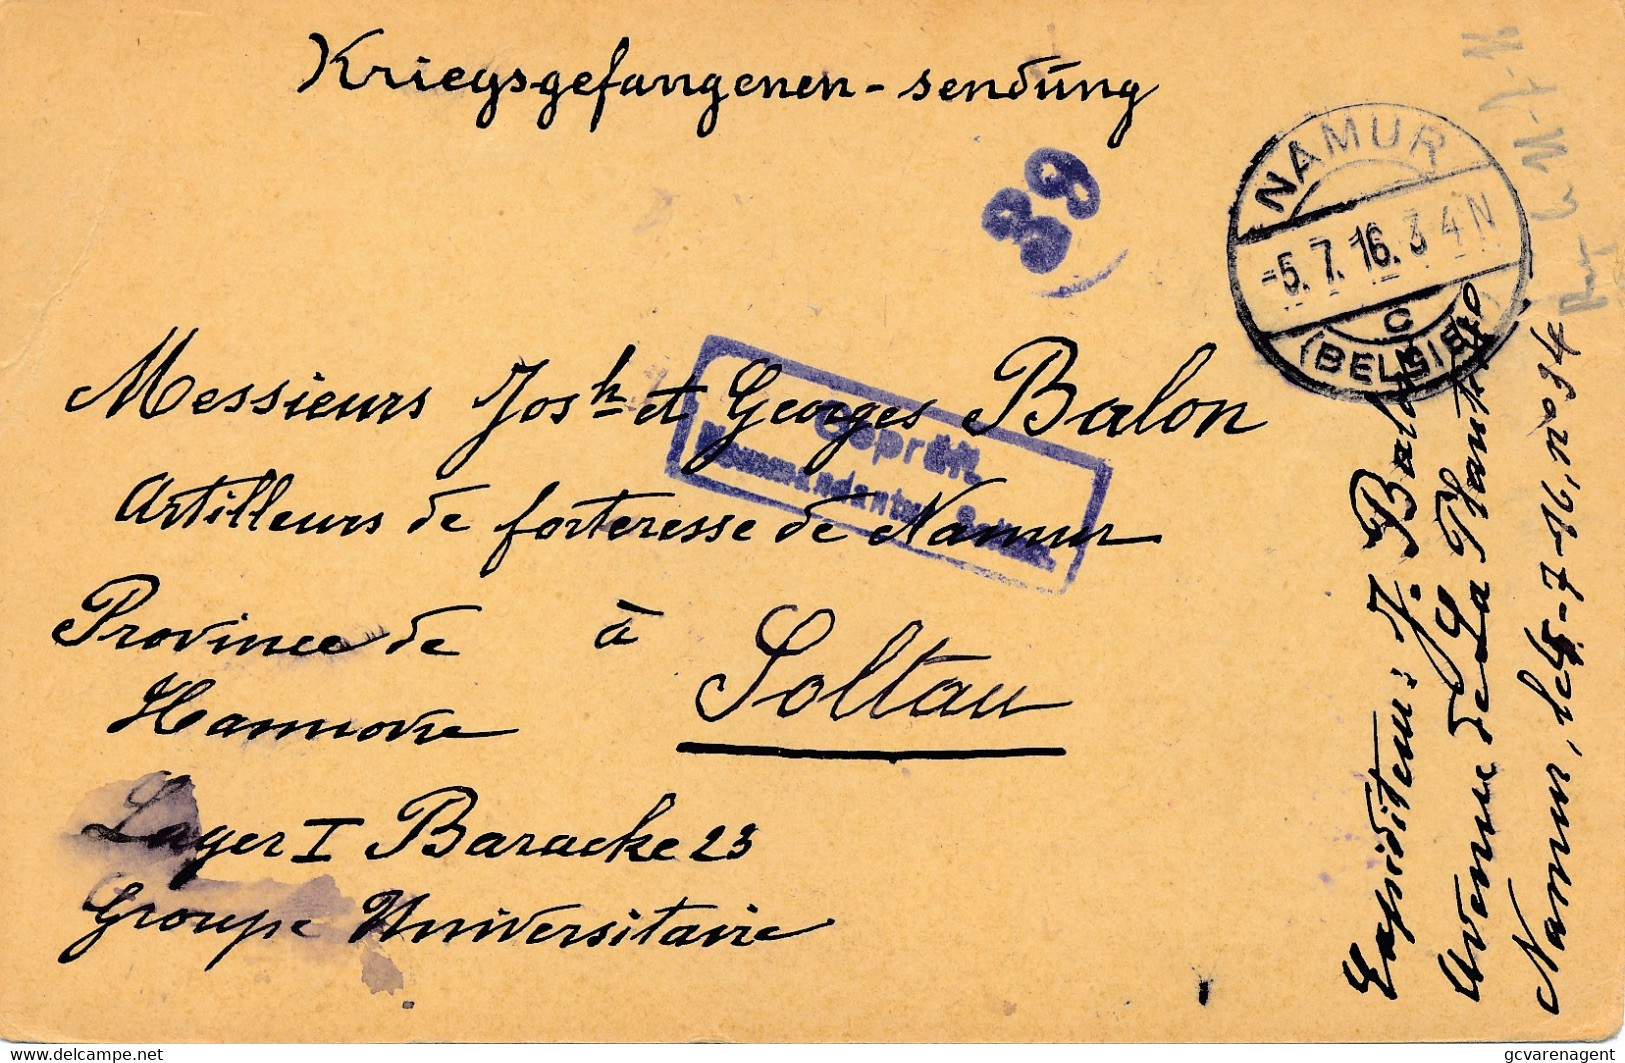 Kriegsgefangenen-sendung
39
NAMUR
-5.7.16.3-4N
C
(BELGIE)
Messieurs Josh et Georges Balon
Geprüft
Kommandantur
Artilleurs de forteresse de Namur
Province de à Soltau
Hannovre
Lager I Baracke 23
Groupe Universitaire
Expéditeur: J. Balon
Avenue de La Plante
Namur, le 5-7-16, no 34
delcampe.net
gcvarenagent